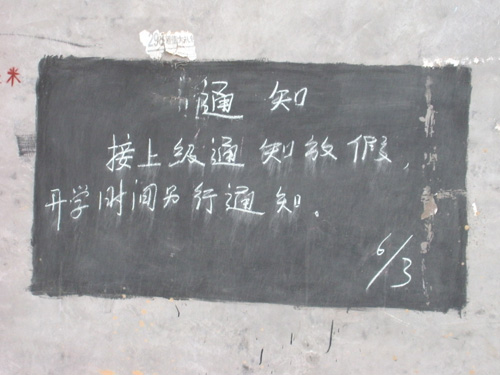 通知
接上级通知放假,
开学时间另行通知。
6/3
米